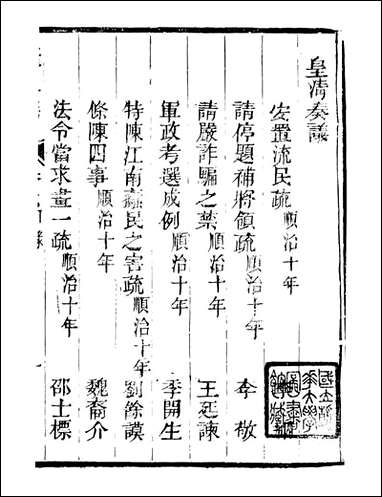 皇清奏議
安置流民疏順治十年
請停題補將領疏順治十年 李敬
請嚴詐騙之禁順治十年 王廷諫
軍政考選成例順治十年 季開生
特陳江南蠹民之害疏順治十年 劉餘謨
條陳四事順治十年 魏裔介
法令當求畫一疏順治十年 邵士標